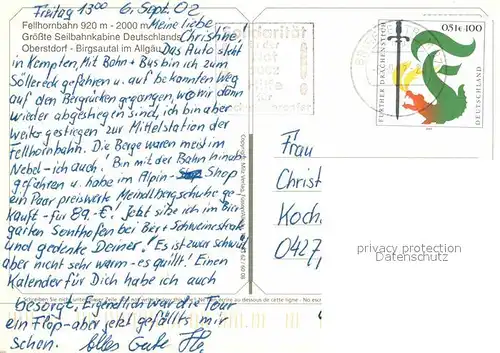 Freitag 13⁰⁰ 6. Sept. 02
Fellhornbahn 920 m - 2000 m
Meine liebe
Größte Seilbahnkabine Deutschlands
Christine
Oberstdorf - Birgsautal im Allgäu
Das Auto steht
in Kempten, Mit Bahn + Bus bin ich zum
Söllereck gefahren u. auf bekannten Weg
auf den Bergrücken gegangen, wo wir dann
wieder abgestiegen sind, ich bin aber
weiter gestiegen zur Mittelstation der
Fellhornbahn. Die Berge waren meist im
Nebel - ich auch! Bin mit der Bahn hinab
gefahren u. habe im Alpin- Shop
ein Paar preiswerte Meindlbergschuhe ge-
kauft - für 89.-€! Jetzt sitze ich im Bier
garten Sonthofen bei Bier + Schweinebraten
und gedenke Deiner! Es ist zwar schwül
aber nicht sehr warm - es quillt! Einen
Kalender für Dich habe ich auch
besorgt. Eigentlich war die Tour
ein Flop - aber jetzt gefällts mir
schon. Alles Gute
Solidarität
0,51 € 100
FURTHER DRACHENSTICH
DEUTSCHLAND
Frau
Christ
Koch
0427,
privacy protection
Datenschutz